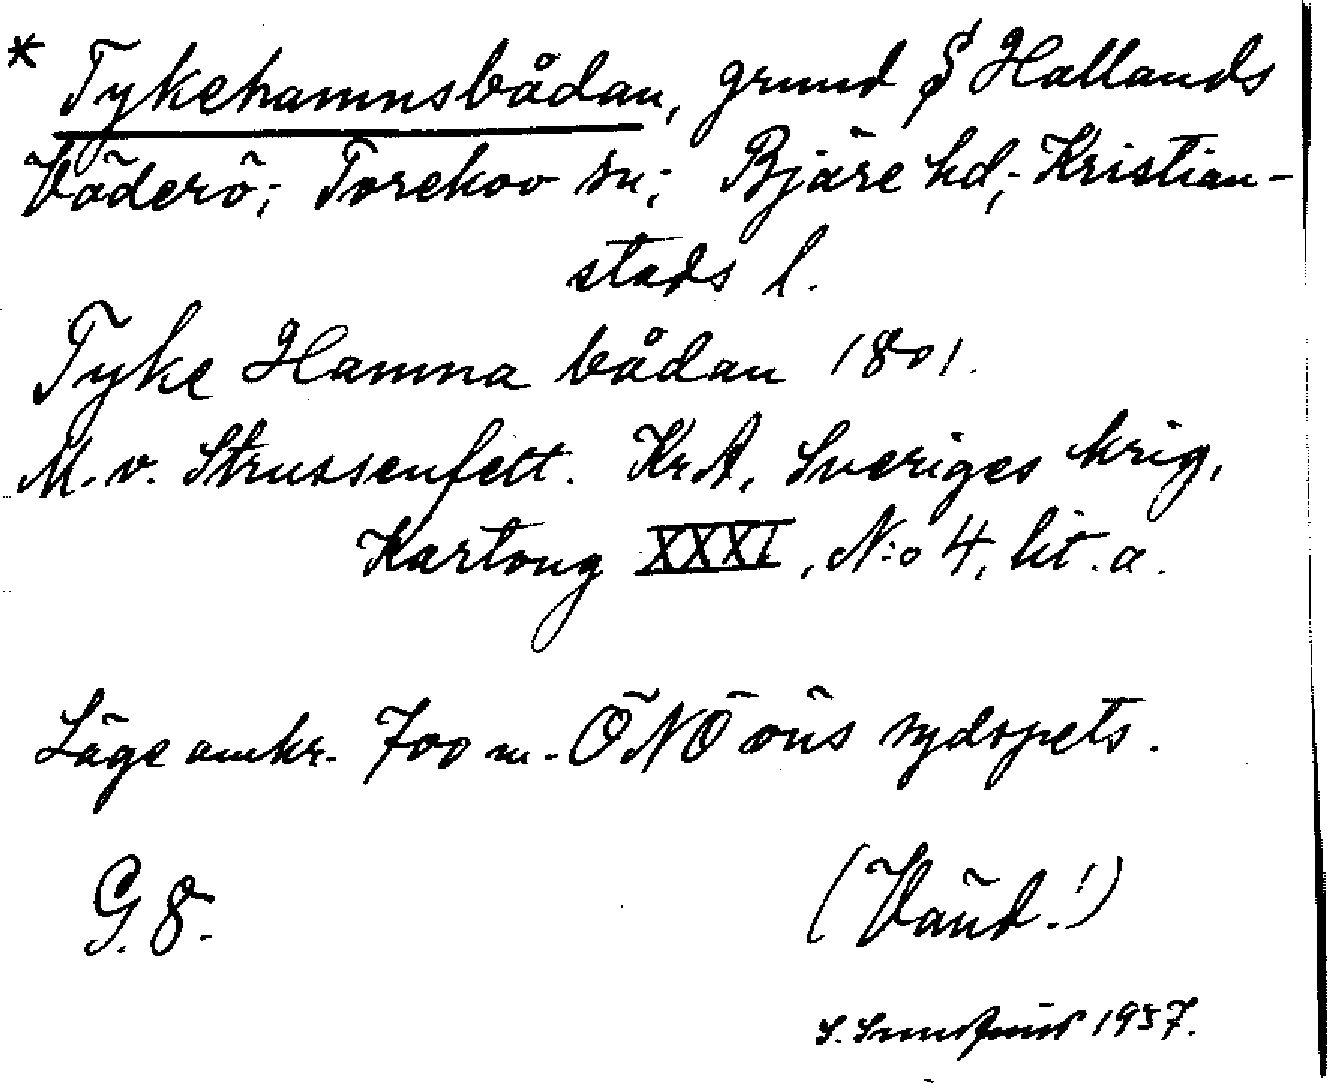 * Tykehamnsbådan, grund § Hallands
Väderö; Torekov sn; Bjäre hd; Kristian-
stads l.
Tyke Hamna bådan 1801.
M. v. Strussenfelt. KrA, Sveriges krig,
Kartong XXXI, N:o 4, lit. a.
Läge omkr. 700 m. ÖNÖ öns sydspets.
G. 8.
(Vänd!)
S. 1957.